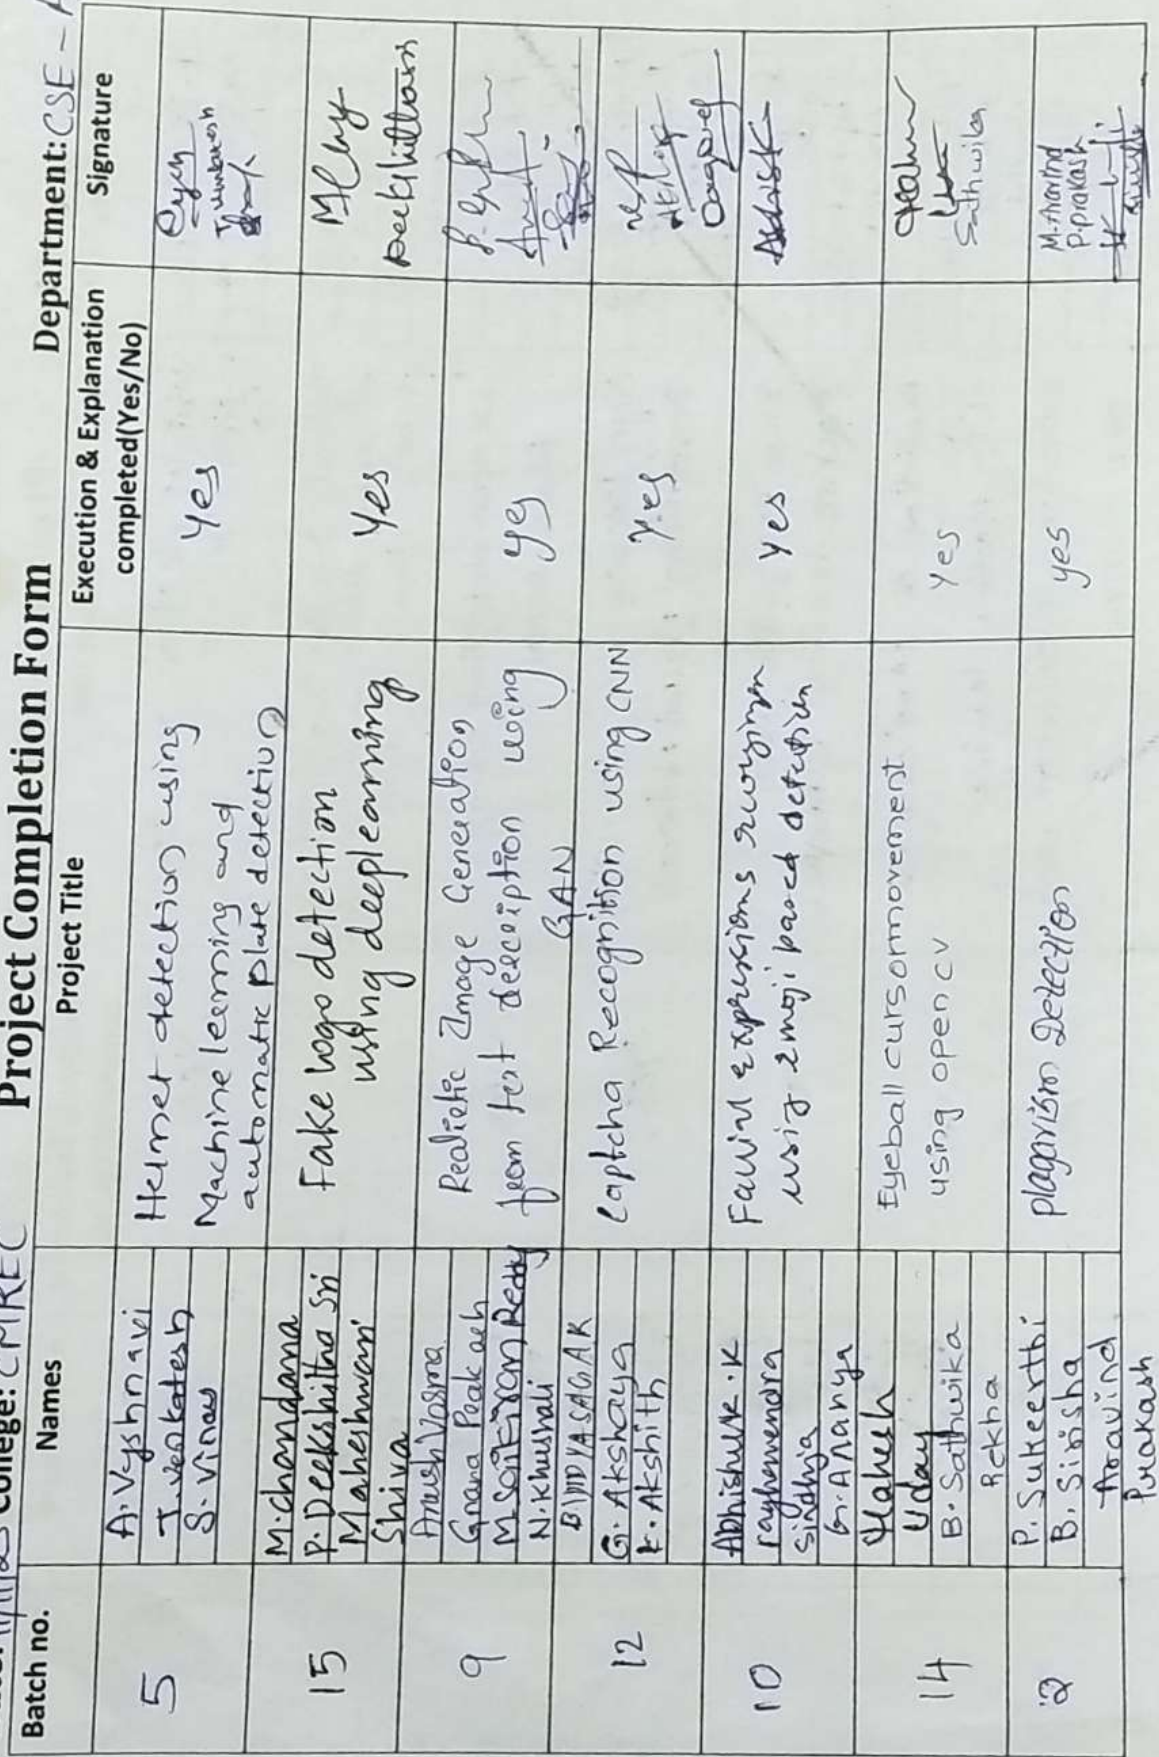 College: CMREC
Project Completion Form
Department: CSE -
Batch no.
Names
Project Title
Execution & Explanation
completed(Yes/No)
Signature
5
A. Vyshnavi
T. Venkatesh
S. Vinay
Helmet detection using
Machine leerning and
automatic plate detection
Yes
15
M. chandana
P. Deekshitha Sri
Maheshwari
Shiva
Fake logo detection
using deeplearning
Yes
9
Anush Varma
Gnana Peakash
M. Sai
Reddy
N. Khushali
Realistic Image Generation
from text description using
GAN
yes
12
BIDDYASAGAR
G. Akshaya
K. Akshith
Captcha Recognition using CNN
Yes
10
Abhishek. K
rayhavendra
Sindhja
G. Ananya
Facial expressions
using emoji based detection
Yes
14
Mahesh
Uday
B. Sathwika
Rekha
Eyeball cursormovement
using open cv
Yes
Sathwika
2
P. Sukeerthi
B. Sirisha
Aravind
Prakash
plagarism Detection
yes
M. Aravind
P. prakash